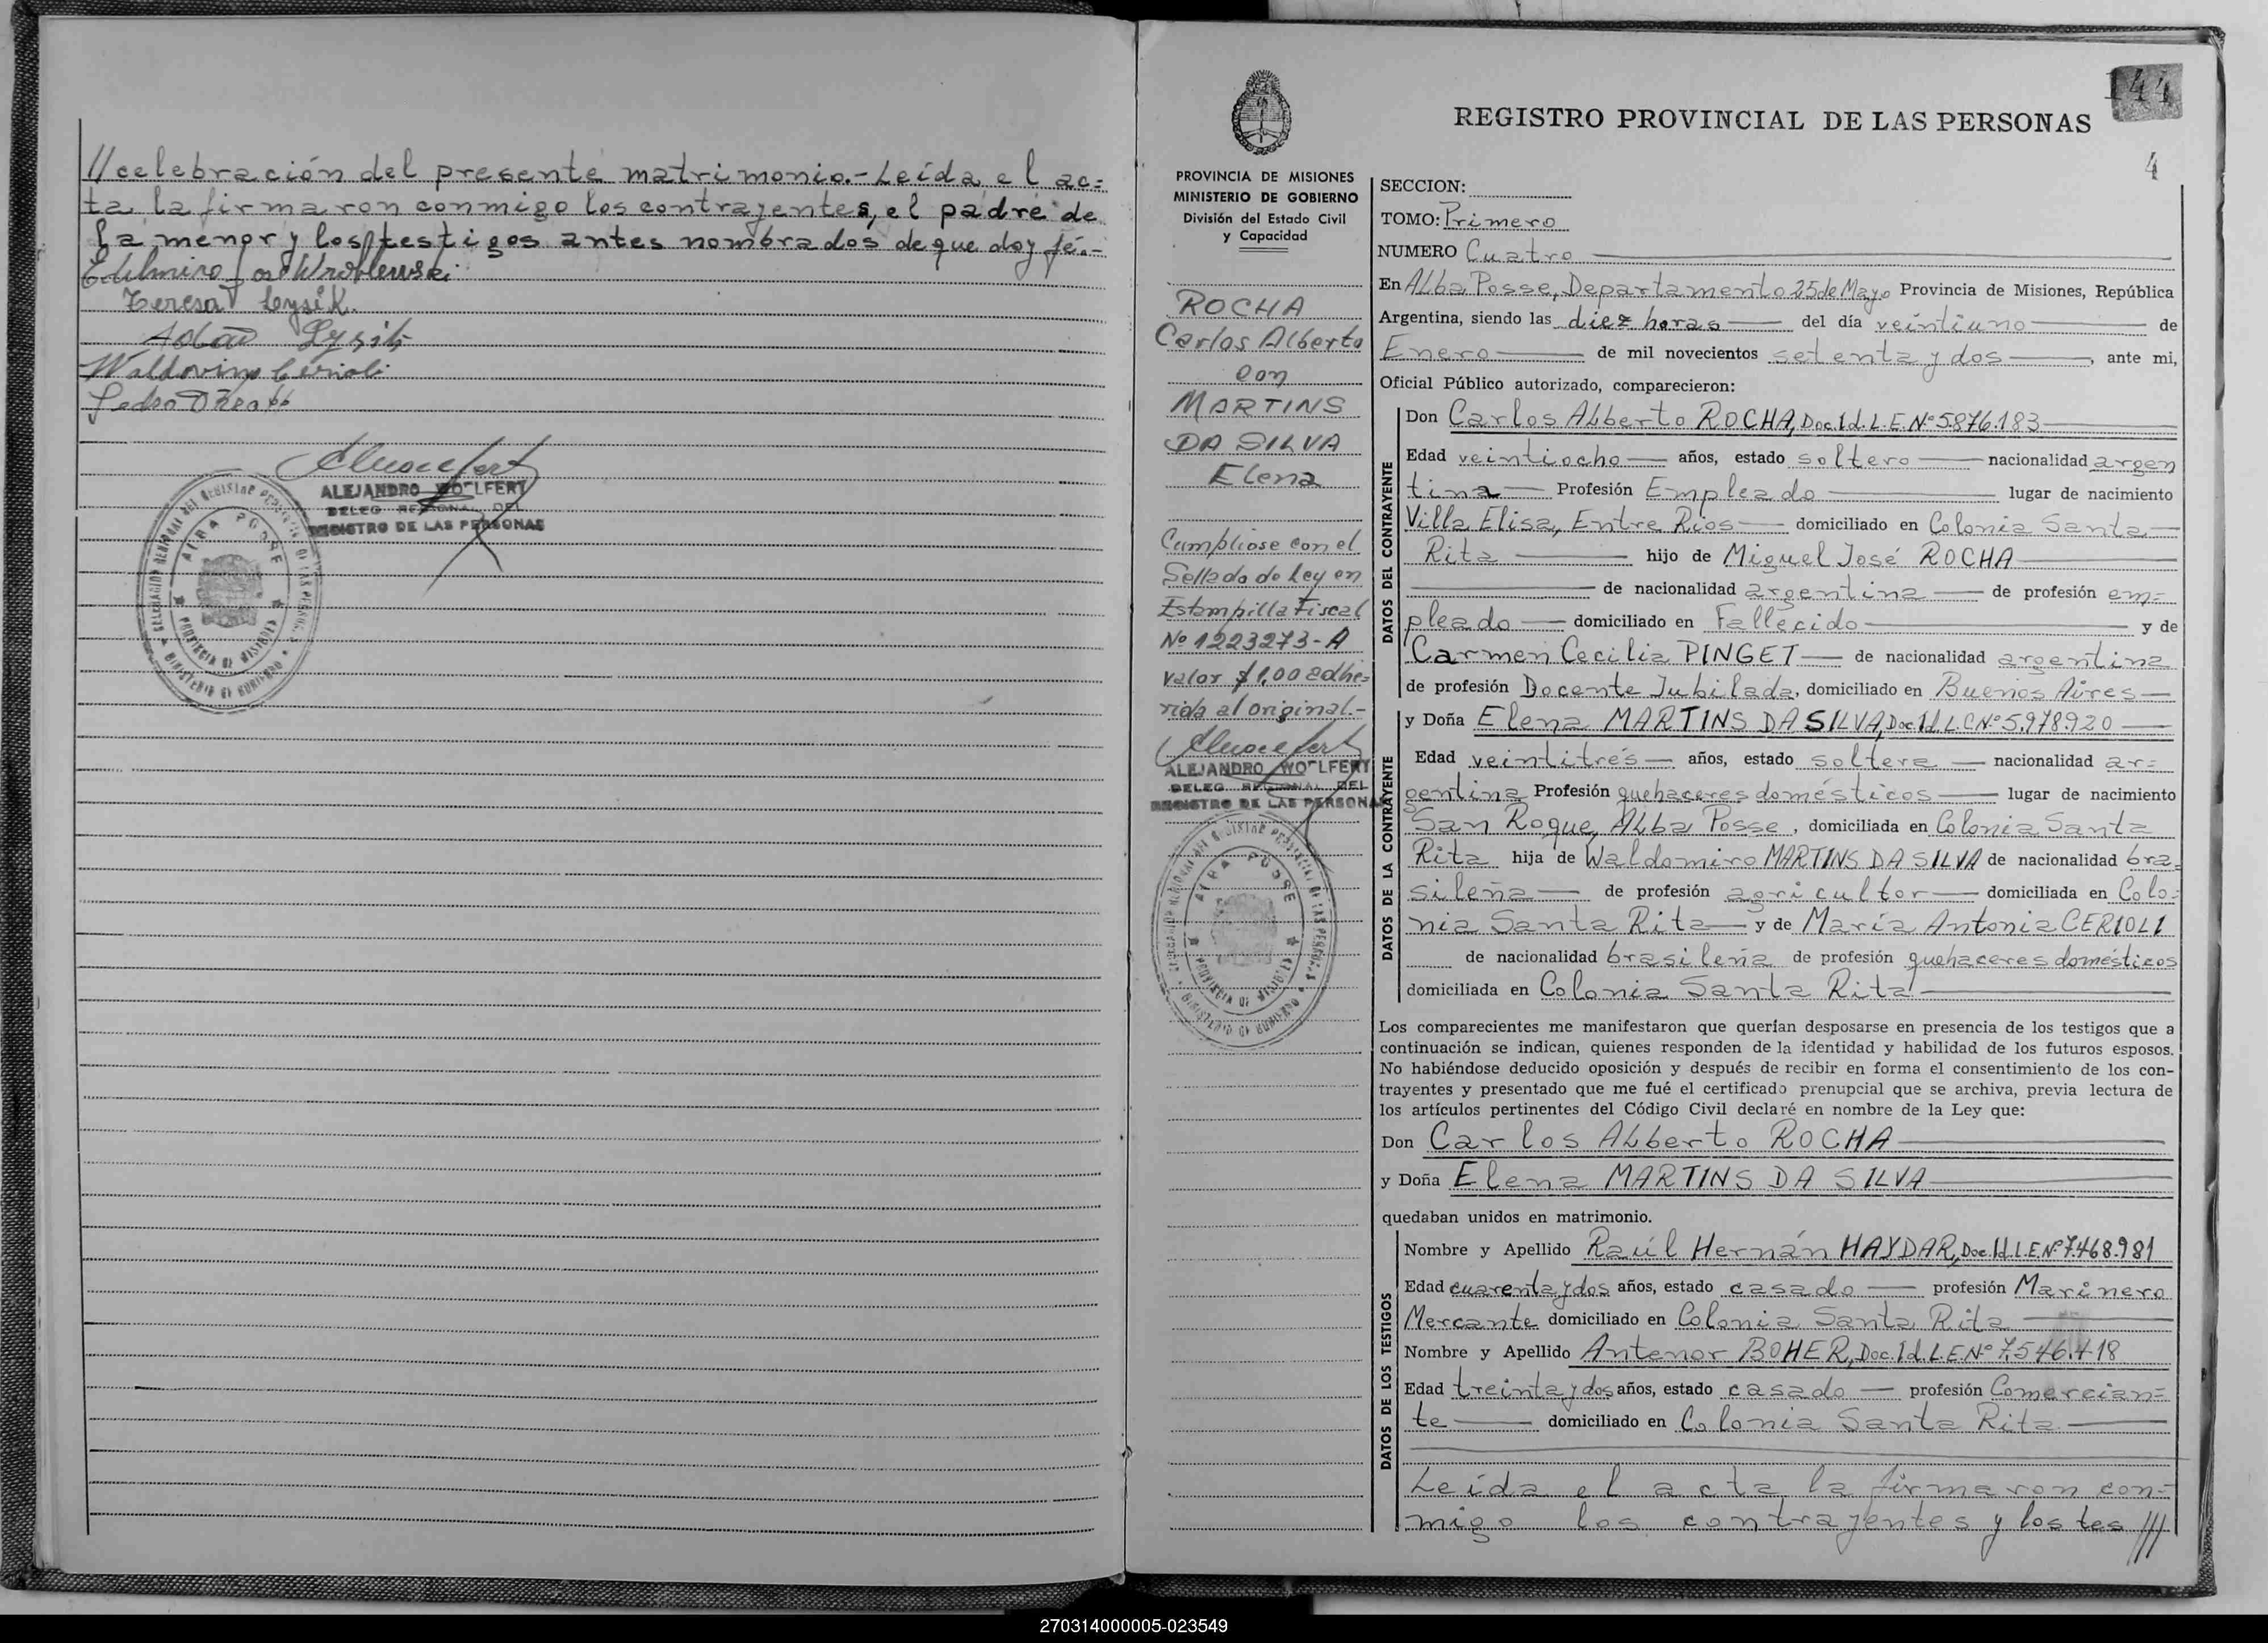 //celebración del presente matrimonio.- Leída el ac=
ta la firmaron conmigo los contrayentes, el padre de
la menor y los testigos antes nombrados de que doy fé.-
Wroblewski
Teresa Lysik.
Lysik
Pedro
ALEJANDRO WOLFERT
DELEG REGIONAL DEL
REGISTRO DE LAS PERSONAS
ALBA POSSE
PROVINCIA DE MISIONES
144
REGISTRO PROVINCIAL DE LAS PERSONAS
4
PROVINCIA DE MISIONES
MINISTERIO DE GOBIERNO
División del Estado Civil
y Capacidad
ROCHA
Carlos Alberto
con
MARTINS
DA SILVA
Elena
Cumpliose con el
Sellado de Ley en
Estampilla Fiscal
Nº 1223273-A
valor $ 1,00 adhe=
rida al original.-
ALEJANDRO WOLFERT
DELEG REGIONAL DEL
REGISTRO DE LAS PERSONAS
ALBA POSSE
PROVINCIA DE MISIONES
SECCION:
TOMO: Primero
NUMERO Cuatro
En Alba Posse, Departamento 25 de Mayo Provincia de Misiones, República
Argentina, siendo las diez horas del día veintiuno de
Enero de mil novecientos setenta y dos, ante mi,
Oficial Público autorizado, comparecieron:
DATOS DEL CONTRAYENTE
Don Carlos Alberto ROCHA, Doc. Id. L.E. Nº 5.876.183
Edad veintiocho años, estado soltero nacionalidad argen
tina Profesión Empleado lugar de nacimiento
Villa Elisa, Entre Rios domiciliado en Colonia Santa
Rita hijo de Miguel José ROCHA
de nacionalidad argentina de profesión em=
pleado domiciliado en Fallecido y de
Carmen Cecilia PINGET de nacionalidad argentina
de profesión Docente Jubilada, domiciliado en Buenos Aires
DATOS DE LA CONTRAYENTE
y Doña Elena MARTINS DA SILVA, Doc. Id. L.C Nº 5.978.920
Edad veintitrés años, estado soltera nacionalidad ar=
gentina Profesión quehaceres domésticos lugar de nacimiento
San Roque, Alba Posse, domiciliada en Colonia Santa
Rita hija de Waldomiro MARTINS DA SILVA de nacionalidad bra=
sileña de profesión agricultor domiciliada en Colo=
nia Santa Rita y de María Antonia CERIOLI
de nacionalidad brasileña de profesión quehaceres domésticos
domiciliada en Colonia Santa Rita
Los comparecientes me manifestaron que querían desposarse en presencia de los testigos que a
continuación se indican, quienes responden de la identidad y habilidad de los futuros esposos.
No habiéndose deducido oposición y después de recibir en forma el consentimiento de los con-
trayentes y presentado que me fué el certificado prenupcial que se archiva, previa lectura de
los artículos pertinentes del Código Civil declaré en nombre de la Ley que:
Don Carlos Alberto ROCHA
y Doña Elena MARTINS DA SILVA
quedaban unidos en matrimonio.
DATOS DE LOS TESTIGOS
Nombre y Apellido Raúl Hernán HAYDAR, Doc. Id. L.E. Nº 7.468.981
Edad cuarenta y dos años, estado casado profesión Marinero
Mercante domiciliado en Colonia Santa Rita
Nombre y Apellido Antenor BOHER, Doc. Id. L.E. Nº 7.546.418
Edad treinta y dos años, estado casado profesión Comercian=
te domiciliado en Colonia Santa Rita
Leída el acta la firmaron con=
migo los contrayentes y los tes ///
270314000005-023549